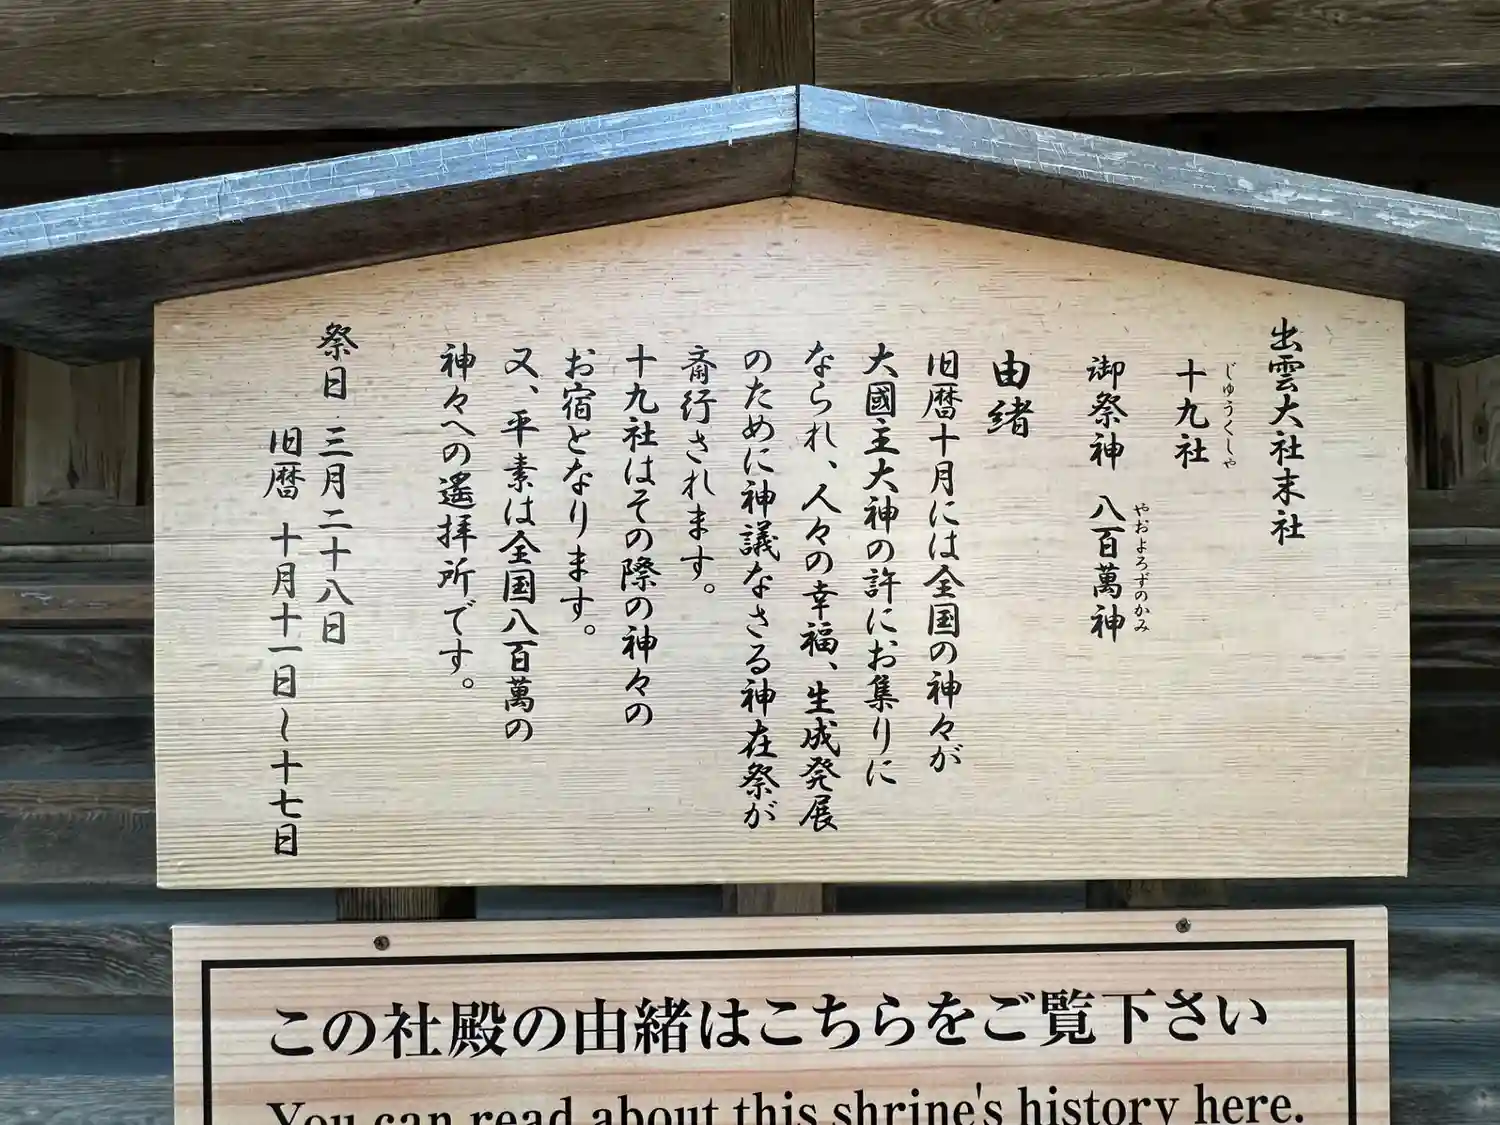 出雲大社末社
じゅうくしゃ
十九社
御祭神 八百萬神
やおよろずのかみ
由緒
旧暦十月には全国の神々が
大國主大神の許にお集りに
なられ、人々の幸福、生成発展
のために神議なさる神在祭が
斎行されます。
十九社はその際の神々の
お宿となります。
又、平素は全国八百萬の
神々への遙拝所です。
祭日 三月二十八日
旧暦 十月十一日~十七日
この社殿の由緒はこちらをご覧下さい
You can read about this shrine's history here.